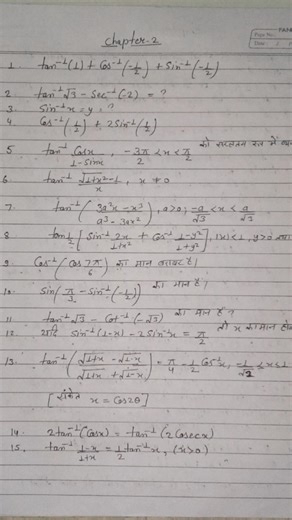 Chapter-2
1. tan⁻¹(1) + Cos⁻¹(-1/2) + Sin⁻¹(-1/2)
2. tan⁻¹√3 - Sec⁻¹(-2) = ?
3. Sin⁻¹x = y = ?
4 Cos⁻¹(1/2) + 2Sin⁻¹(1/2)
5 tan⁻¹ Cosx/1-Sinx, -3π/2 < x < π/2 को सरलतम रूप में
6 tan⁻¹ √1+x²-1/x, x ≠ 0
7 tan⁻¹(3a²x-x³/a³-3ax²), a>0; -a/√3 < x < a/√3
8 tan 1/2 [Sin⁻¹ 2x/1+x² + Cos⁻¹ 1-y²/1+y²], |x|<1, y>0 तथा
9. Cos⁻¹(Cos 7π/6) का मान ज्ञात करें।
10. Sin(π/3 - Sin⁻¹(-1/2)) का मान है।
11 tan⁻¹√3 - Cot⁻¹(-√3) का मान है?
12. यदि Sin⁻¹(1-x) - 2Sin⁻¹x = π/2 तो x का मान
13. tan⁻¹(√1+x - √1-x/√1+x + √1-x) = π/4 - 1/2 Cos⁻¹x, -1/√2 ≤ x ≤ 1
[संकेत x = Cos2θ]
14. 2tan⁻¹(Cosx) = tan⁻¹(2Cosecx)
15. tan⁻¹ 1-x/1+x = 1/2 tan⁻¹x, (x>0)